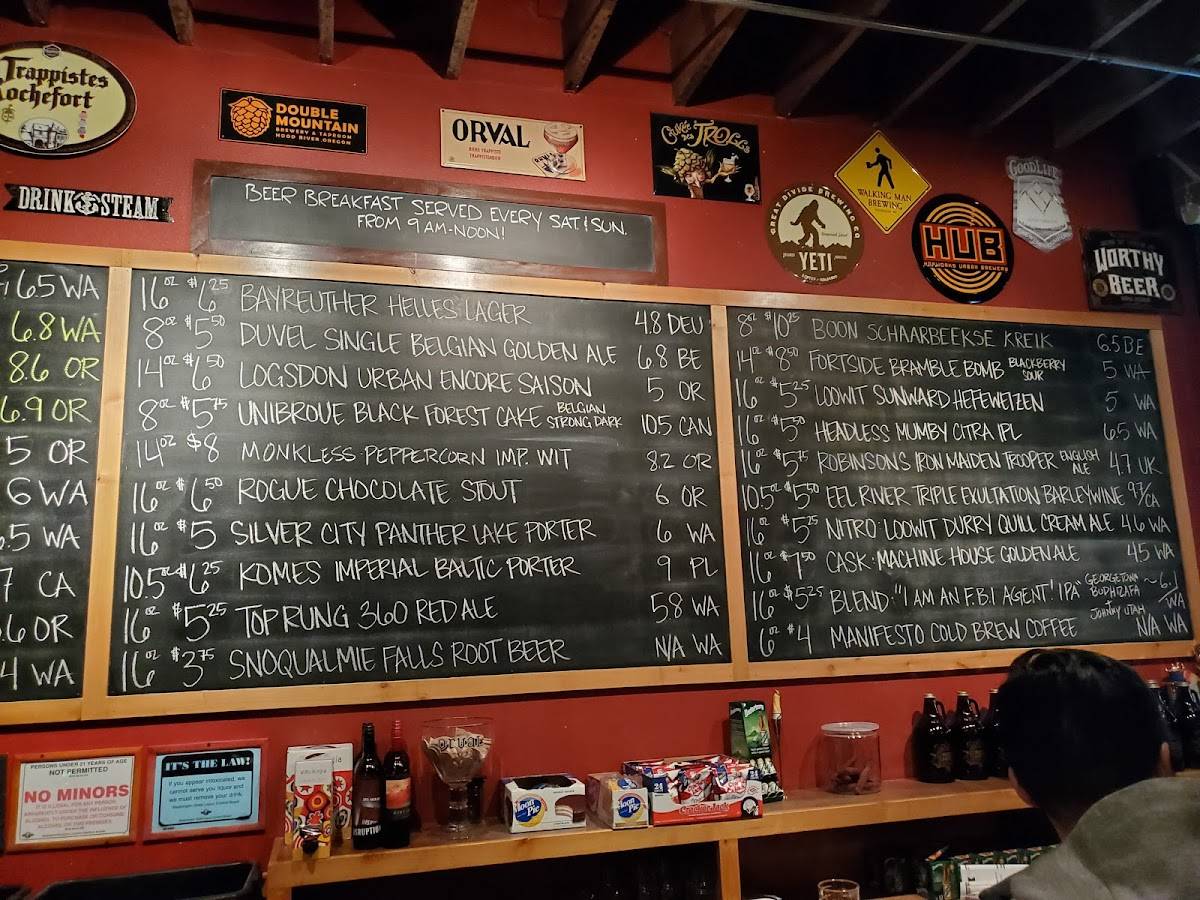 Trappistes
Rochefort
DOUBLE
MOUNTAIN
BREWERY & TAPROOM
HOOD RIVER OREGON
ORVAL
BIÈRE TRAPPISTE
TRAPPISTENBIER
Cuvée
des TROLLS
WALKING MAN
BREWING
GREAT DIVIDE BREWING CO
YETI
HUB
HOPWORKS URBAN BREWERY
GOODLIFE
WORTHY
BEER
DRINK STEAM
BEER BREAKFAST SERVED EVERY SAT & SUN.
FROM 9AM-NOON!
6.5 WA
6.8 WA
8.6 OR
6.9 OR
5 OR
6 WA
.5 WA
7 CA
.6 OR
4 WA
16oz $6.25 BAYREUTHER HELLES LAGER 4.8 DEU
8oz $5.50 DUVEL SINGLE BELGIAN GOLDEN ALE 6.8 BE
14oz $6.50 LOGSDON URBAN ENCORE SAISON 5 OR
8oz $5.75 UNIBROUE BLACK FOREST CAKE BELGIAN STRONG DARK 10.5 CAN
14oz $8 MONKLESS PEPPERCORN IMP. WIT 8.2 OR
16oz $6.50 ROGUE CHOCOLATE STOUT 6 OR
16oz $5 SILVER CITY PANTHER LAKE PORTER 6 WA
10.5oz $6.25 KOMES IMPERIAL BALTIC PORTER 9 PL
16oz $5.25 TOP RUNG 360 RED ALE 5.8 WA
16oz $3.75 SNOQUALMIE FALLS ROOT BEER N/A WA
8oz $10.25 BOON SCHAARBEEKSE KREIK 6.5 BE
14oz $8.50 FORTSIDE BRAMBLE BOMB BLACKBERRY SOUR 5 WA
16oz $5.25 LOOWIT SUNWARD HEFEWEIZEN 5 WA
16oz $5.50 HEADLESS MUMBY CITRA IPL 6.5 WA
16oz $5.75 ROBINSONS IRON MAIDEN TROOPER ENGLISH ALE 4.7 UK
10.5oz $5.50 EEL RIVER TRIPLE EXULTATION BARLEYWINE 9.7/CA
16oz $5.25 NITRO: LOOWIT DURRY QUILL CREAM ALE 4.6 WA
16oz $7.50 CASK: MACHINE HOUSE GOLDEN ALE 4.5 WA
16oz $5.25 BLEND: "I AM AN F.B.I AGENT! IPA" GEORGETOWN BODHIZAFA JOHNNY UTAH ~6.1/WA
6oz $4 MANIFESTO COLD BREW COFFEE N/A WA
PERSONS UNDER 21 YEARS OF AGE
NOT PERMITTED
NO MINORS
IT'S THE LAW!
If you appear intoxicated, we
cannot serve you liquor and
we must remove your drink.
DUVEL
Moon
Pie
Moon
Pie
24
Cracker Jack